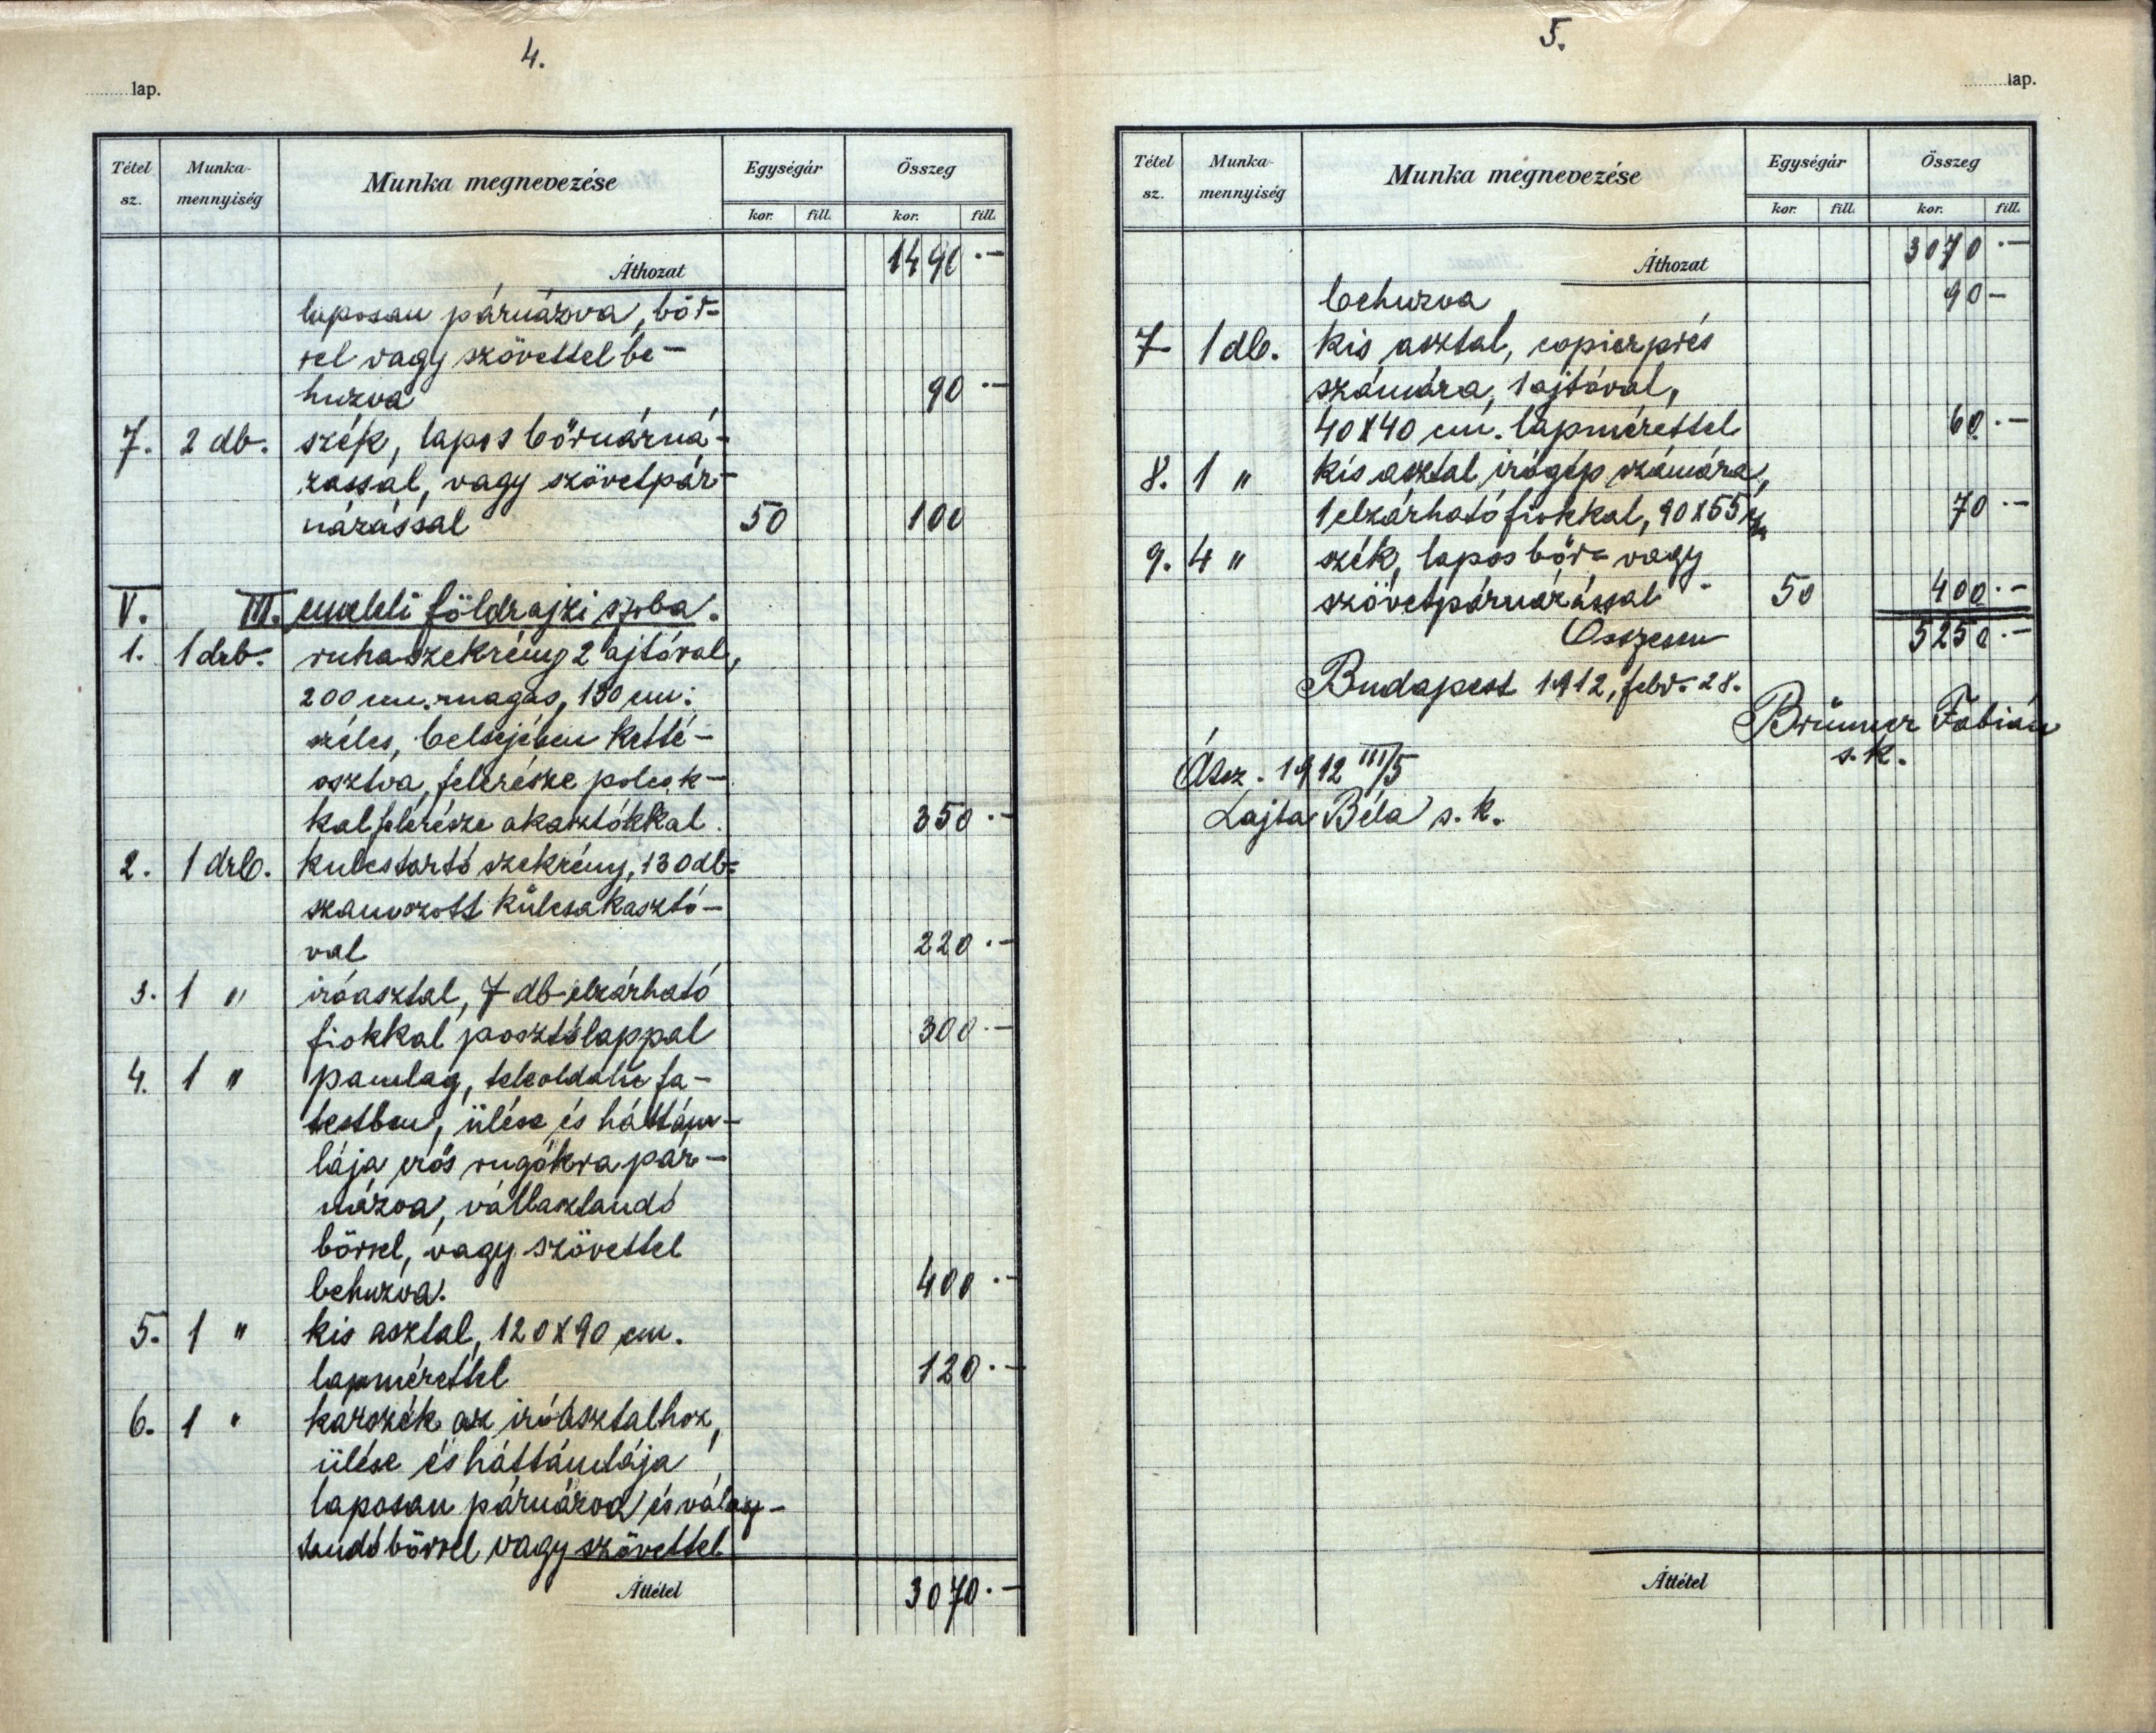 4.
lap.
Tétel sz. Munka-mennyiség Munka megnevezése Egységár Összeg
kor. fill. kor. fill.
Áthozat 1490.-
laposan párnázva, bőr-
rel vagy szövettel be-
huzva 90.-
7. 2 db. szék, lapos bőrnárná-
zassal, vagy szövetpár-
názással 50 100
V. III. emeleti földrajzi szoba.
1. 1 drb. ruhaszekrény 2 ajtóval,
200 cm. magas, 130 cm.
széles, belsejében ketté-
osztva, felerésze polcok-
kal felerésze akasztókkal. 350.-
2. 1 drb. kulcstartó szekrény, 130 db-
szamozott kulcsakasztó-
val 220.-
3. 1 " iróasztal, 7 db elzárható
fiokkal posztólappal 300.-
4. 1 " pamlag, teleoldalu fa-
testben, ülése és háttám-
lája erős rugókra pár-
názva,választandó
bőrrel, vagy szövettel
behuzva. 400.-
5. 1 " kis asztal, 120x90 cm.
lapmérettel 120.-
6. 1 " karszék az iróasztalhoz,
ülése és háttámlája
laposan párnázva és válasz-
tandó bőrrel vagy szövettel
Áttétel 3070.-
5.
lap.
Tétel sz. Munka-mennyiség Munka megnevezése Egységár Összeg
kor. fill. kor. fill.
Áthozat 3070.-
behuzva 90-
7 1 db. kis asztal, copierprés
számára, 1 ajtóval,
40x40 cm. lapmérettel 60.-
8. 1 " kis asztal irógép számára,
1 elzárható fiokkal, 90x55 cm 70.-
9. 4 " szék, lapos bőr- vagy
szövetpárnázással 50 400.-
Összesen 5250.-
Budapest 1912, febr. 28.
Brünner Fábián
s. k.
Átsz. 1912 III/5
Lajta Béla s. k.
Áttétel